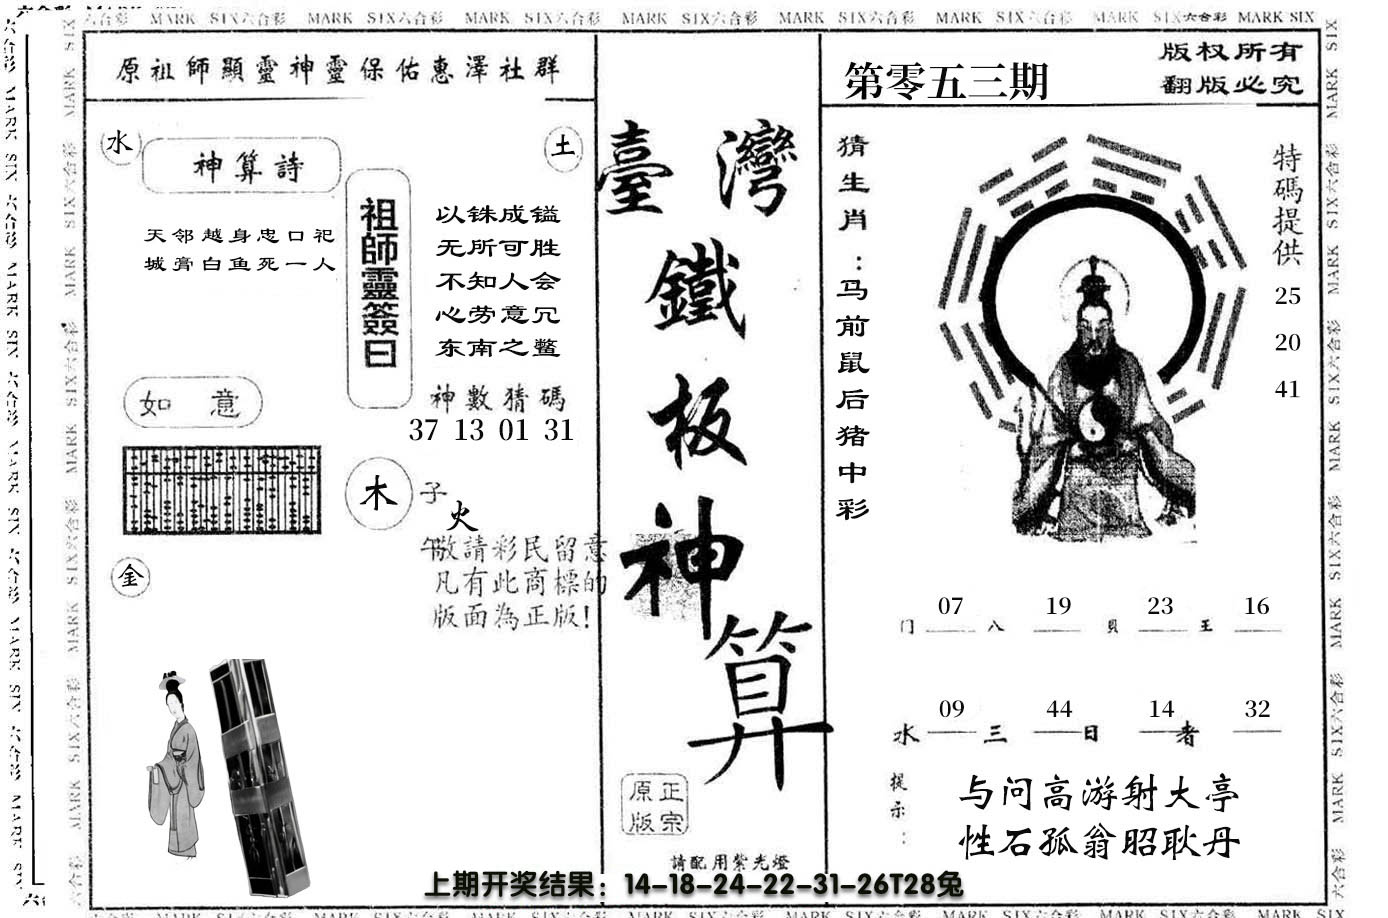 MARK SIX六合彩 MARK SIX六合彩 MARK SIX六合彩 MARK SIX六合彩 MARK SIX六合彩 MARK SIX六合彩 MARK SIX六合彩 MARK SIX
原祖師顯靈神靈保佑惠澤社群
水
神算詩
土
天邻越身忠口祀
城膏白鱼死一人
祖師靈簽曰
以铢成镒
无所可胜
不知人会
心劳意冗
东南之鳖
神數猜碼
37 13 01 31
如意
木
子
火
午
敬請彩民留意
凡有此商標的
版面為正版!
金
臺灣
鐵
板
神
算
原正
版宗
請配用紫光燈
第零五三期
版权所有
翻版必究
猜生肖:马前鼠后猪中彩
特碼提供
25
20
41
07 19 23 16
门 八 贝 王
09 44 14 32
水 三 日 者
提示:
与问高游射大亭
性石孤翁昭耿丹
上期开奖结果:14-18-24-22-31-26T28兔